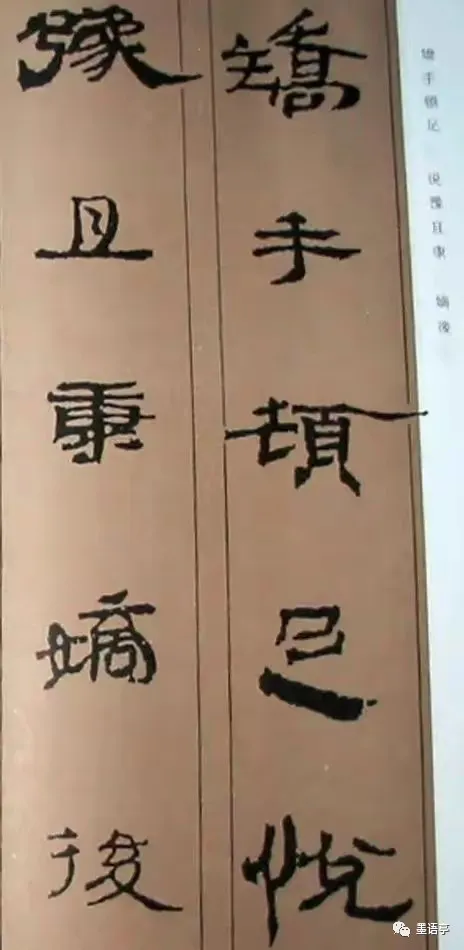 矫手顿足　悦豫且康　嫡後
矯手頓足悦
豫且康嫡後
墨语亭